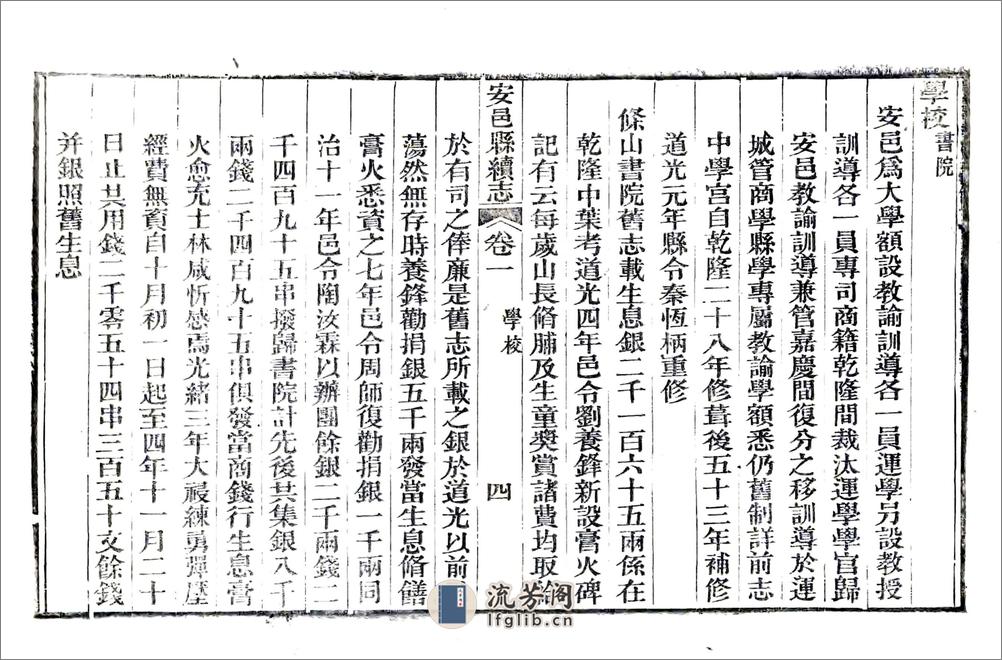 學校書院
安邑爲大學額設教諭訓導各一員運學另設教授
訓導各一員專司商籍乾隆間裁汰運學學官歸
安邑教諭訓導兼管嘉慶間復分之移訓導於運
城管商學縣學專屬教諭學額悉仍舊制詳前志
中學宮自乾隆二十八年修葺後五十三年補修
道光元年縣令秦恆柄重修
條山書院舊志載生息銀二千一百六十五兩係在
乾隆中葉考道光四年邑令劉養鋒新設膏火碑
記有云每歲山長脩脯及生童奬賞諸費均取給
安邑縣續志 卷一 學校 四
於有司之俸廉是舊志所載之銀於道光以前
蕩然無存時養鋒勸捐銀五千兩發當生息脩饍
膏火悉資之七年邑令周師復勸捐銀一千兩同
治十一年邑令陶汝霖以辦團餘銀二千兩錢二
千四百九十五串撥歸書院計先後共集銀八千
兩錢二千四百九十五串俱發當商錢行生息膏
火愈充士林咸忻感焉光緒三年大祲練勇彈壓
經費無資自十月初一日起至四年十一月二十
日止共用錢二千零五十四串三百五十文餘錢
并銀照舊生息
流芳阁
lfglib.cn